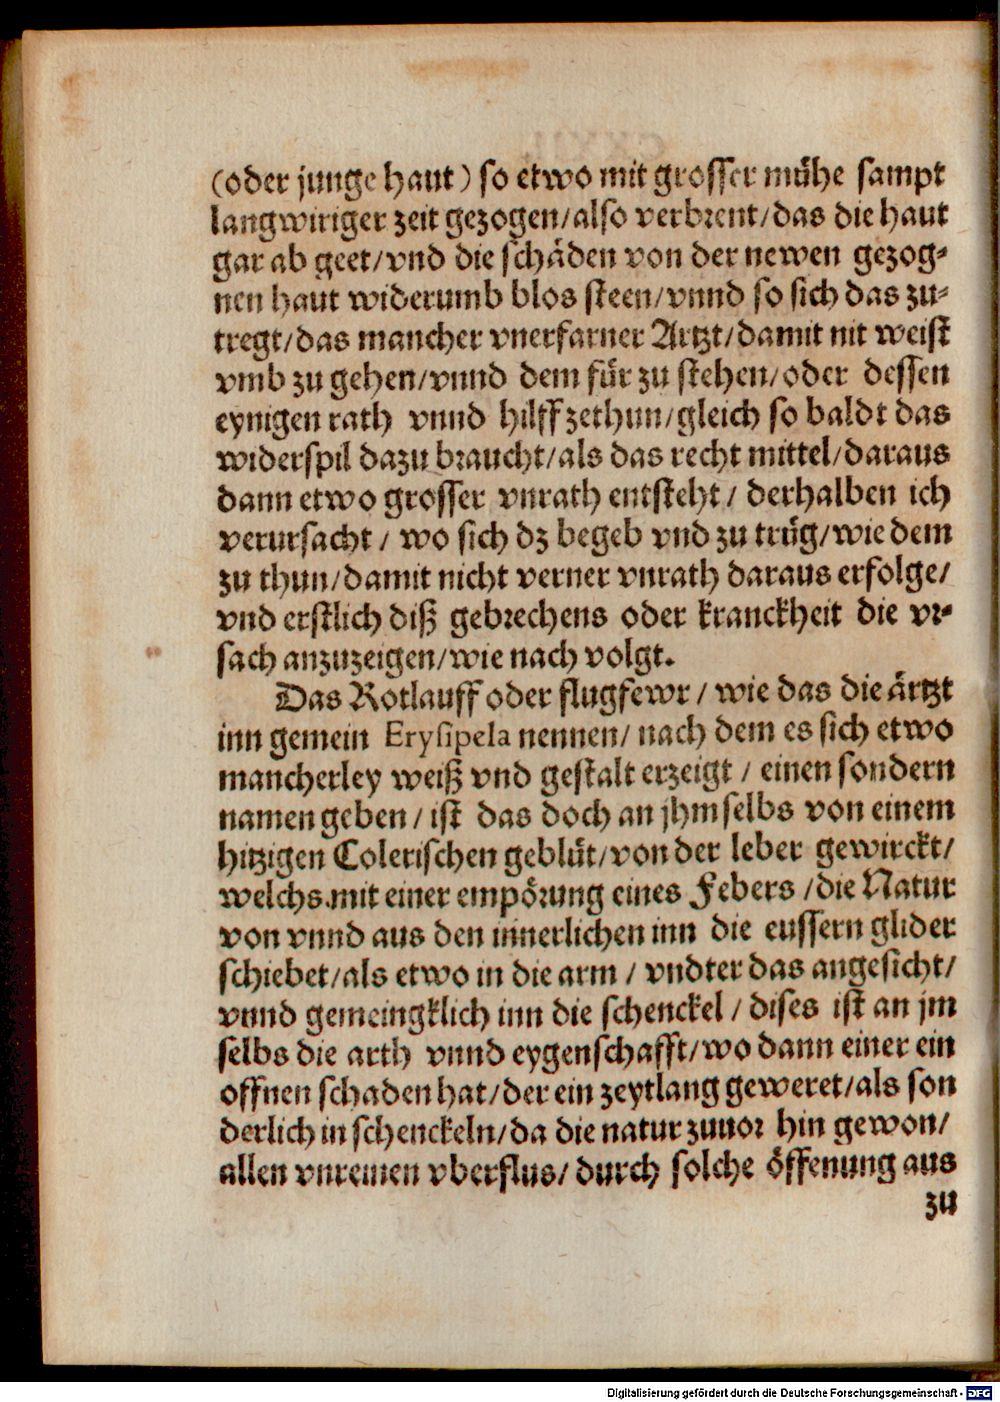 (oder junge haut) so etwo mit grosser mühe sampt
langwiriger zeit gezogen/also verbrent/das die haut
gar ab geet/vnd die schäden von der newen gezog-
nen haut widerumb blos steen/vnnd so sich das zu-
tregt/das mancher vnerfarner Artzt/damit nit weist
vmb zu gehen/vnnd dem für zu stehen/oder dessen
eynigen rath vnnd hilff zethun/gleich so baldt das
widerspil dazu braucht/als das recht mittel/daraus
dann etwo grosser vnrath entsteht/ derhalben ich
verursacht/ wo sich dz begeb vnd zu trüg/wie dem
zu thun/damit nicht verner vnrath daraus erfolge/
vnd erstlich diß gebrechens oder kranckheit die vr-
sach anzuzeigen/wie nach volgt.
Das Rotlauff oder flugfewr/ wie das die ärtzt
inn gemein Erysipela nennen/ nach dem es sich etwo
mancherley weiß vnd gestalt erzeigt/ einen sondern
namen geben/ ist das doch an jhm selbs von einem
hitzigen Colerischen geblüt/von der leber gewirckt/
welchs.mit einer empörung eines Febers/die Natur
von vnnd aus den innerlichen inn die eussern glider
schiebet/als etwo in die arm/ vndter das angesicht/
vnnd gemeingklich inn die schenckel/ dises ist an jm
selbs die arth vnnd eygenschafft/wo dann einer ein
offnen schaden hat/der ein zeytlang geweret/als son
derlich in schenckeln/da die natur zuuor hin gewon/
allen vnreinen vberflus/ durch solche öffenung aus
zu
Digitalisierung gefördert durch die Deutsche Forschungsgemeinschaft - DFG